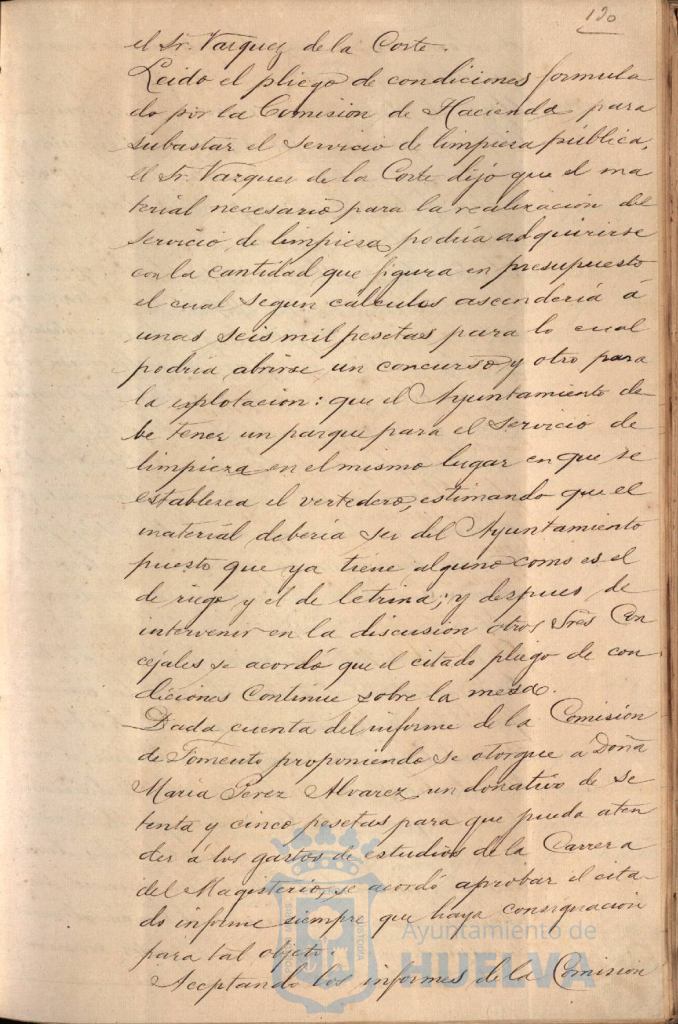 120
el Sr. Vazquez de la Corte.
Leido el pliego de condiciones formula
do por la Comisión de Hacienda para
subastar el servicio de limpieza pública,
el Sr. Vazquez de la Corte dijo que el ma
terial necesario para la realización del
servicio de limpieza, podria adquirirse
con la cantidad que figura en presupuesto
el cual segun calculos ascenderia á
unas seis mil pesetas para lo cual
podria abrirse un concurso y otro para
la explotacion: que el Ayuntamiento de-
be tener un parque para el servicio de
limpieza en el mismo lugar en que se
establezca el vertedero, estimando que el
material deberia ser del Ayuntamiento
puesto que ya tiene alguno como es el
de riego y el de letrina; y despues de
intervenir en la discusión otros Sres Con
cejales se acordó que el citado pliego de con-
diciones continue sobre la mesa.
Dada cuenta del informe de la Comisión
de Fomento proponiendo se otorgue a Doña
Maria Perez Alvarez un donativo de se
tenta y cinco pesetas para que pueda aten
der á los gastos de estudios de la Carrera
del Magisterio, se acordó aprobar el cita-
do informe siempre que haya consignación
para tal objeto.
Aceptando los informes de la Comisión
Ayuntamiento de
HUELVA